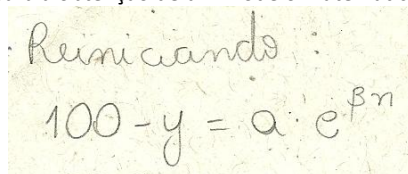 Reiniciando :
100 - y = a · e^{βn}